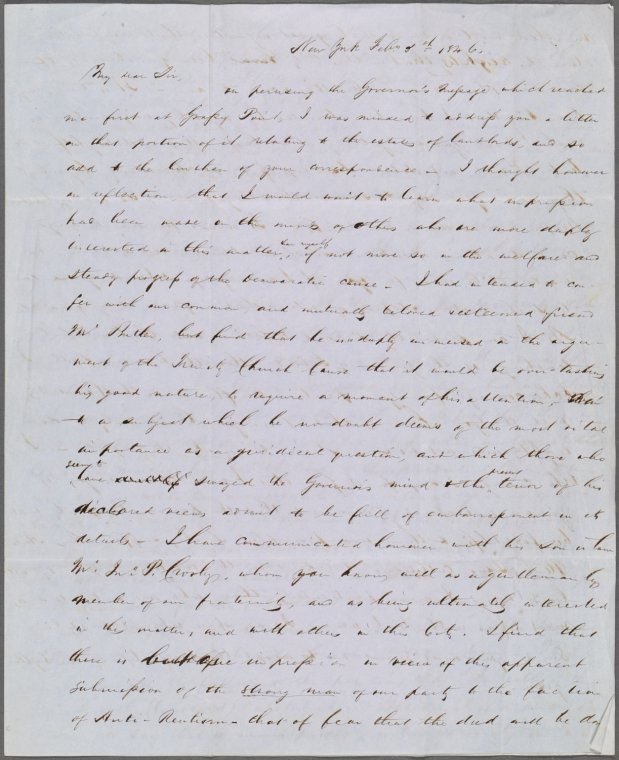 New York Feby 3d 1846.
My dear Sir,
on perusing the Governor's Message which reached
me first at I was minded to address you a letter
on that portion of it relating to the estates of landlords and so
add to the burthen of your correspondence – I thought however
on reflection, that I would wait to learn what impression
had been made on the minds of others who are more deeply
interested in this matter, than myself, if not more so in the welfare and
steady progress of the Democratic cause – I had intended to con-
fer with our common, and mutually beloved & esteemed friend
Mr Butler, but find that he is deeply immersed in the argu-
ment of the Trinity Church Cause that it would be over-tasking
his good nature, to require a moment of his attention, even
to a subject which he no doubt deems of the most vital
importance as a juridical question, and which those who
seem to have swayed the Governor's mind & the tenor of his
declared views admit to be full of embarrassment in its
details – I have communicated however with his son in law
Mr Jno P. Crosby, whom you know well as a gentleman by
member of our fraternity, and as being ultimately interested
in this matter, and with others in this City. I find that
there is but one impression in view of this apparent
submission of the strong man of our party to the faction
of Anti-Rentism – that of fear that the deed will be do